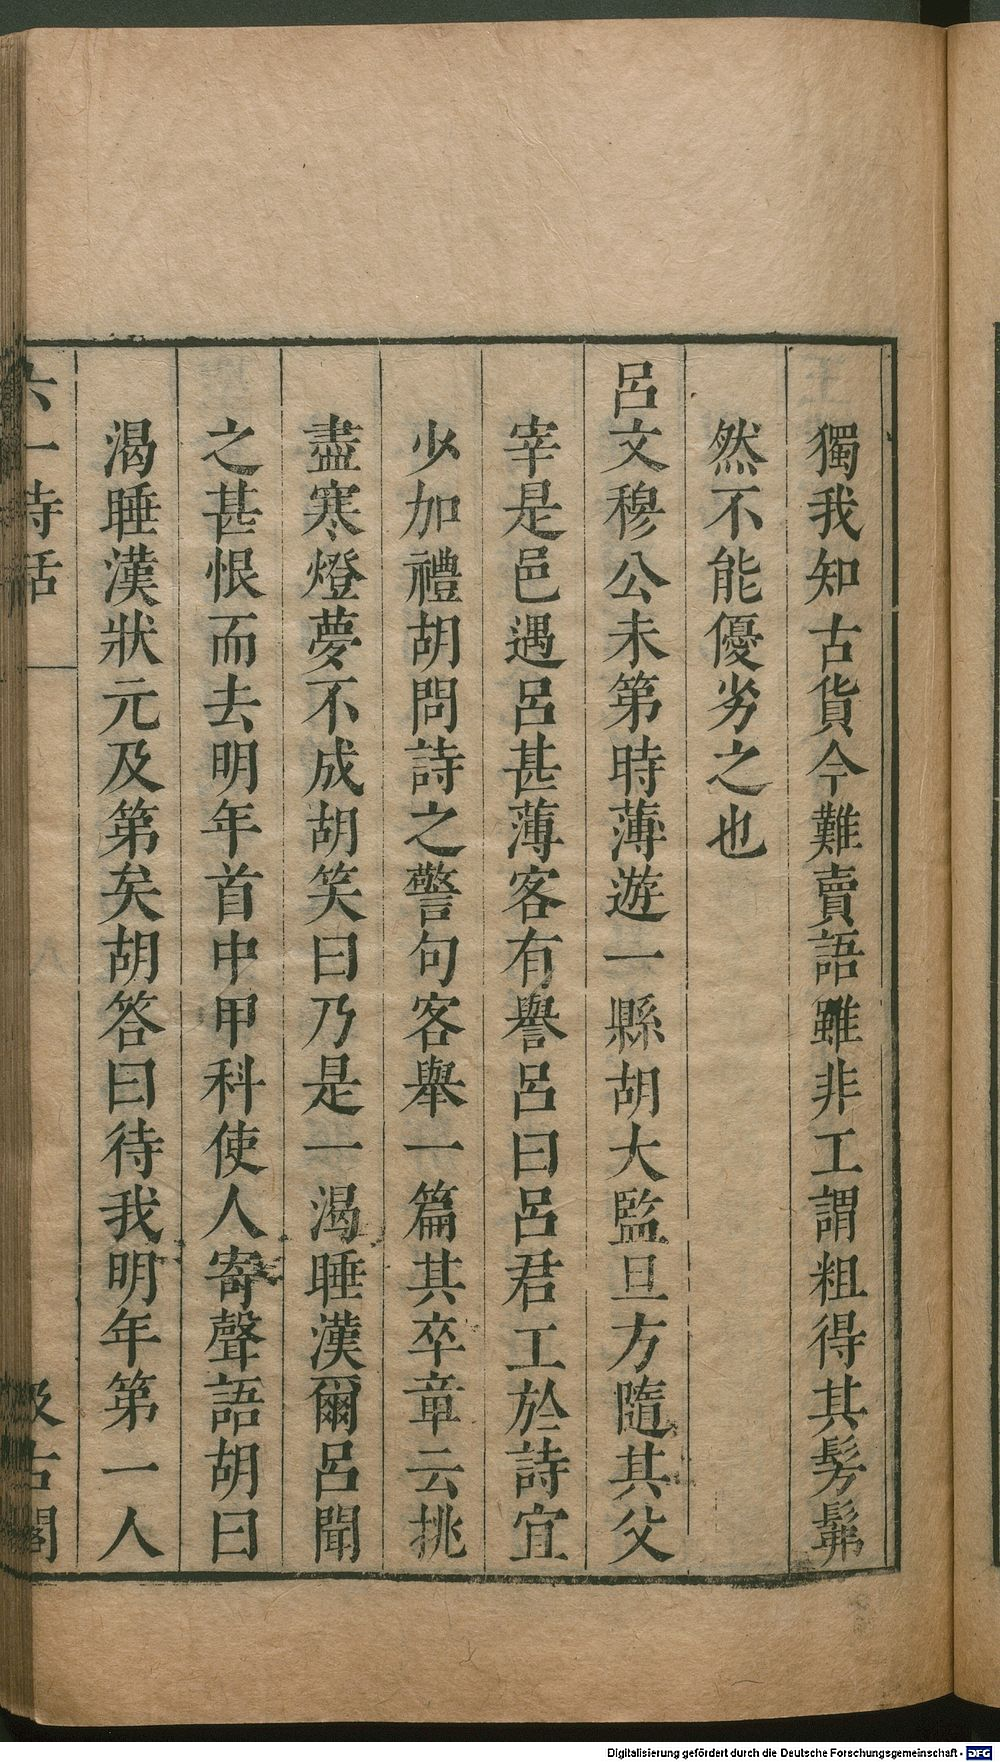 獨我知古貨今難賣語雖非工謂粗得其髣髴
然不能優劣之也
呂文穆公未第時薄遊一縣胡大監旦方隨其父
宰是邑遇呂甚薄客有譽呂曰呂君工於詩宜
少加禮胡問詩之警句客舉一篇其卒章云挑
盡寒燈夢不成胡笑曰乃是一渴睡漢爾呂聞
之甚恨而去明年首中甲科使人寄聲語胡曰
渴睡漢狀元及第矣胡答曰待我明年第一人
六一詩話
汲古閣
Digitalisierung gefördert durch die Deutsche Forschungsgemeinschaft - DFG